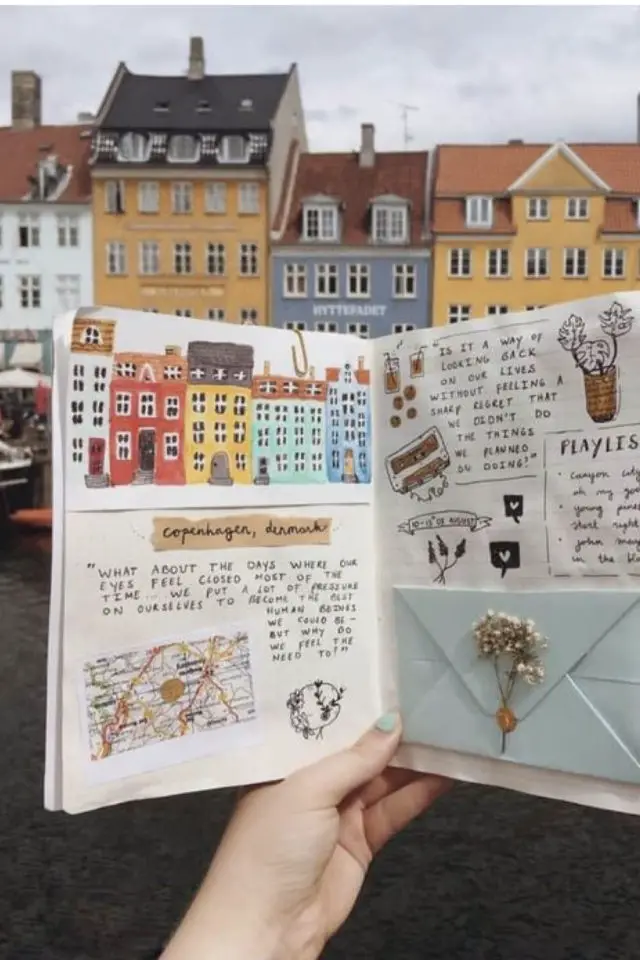 HYTTEFADET
copenhagen, denmark
"WHAT ABOUT THE DAYS WHERE OUR
EYES FEEL CLOSED MOST OF THE
TIME... WE PUT A LOT OF PRESSURE
ON OURSELVES TO BECOME THE BEST
HUMAN BEINGS
WE COULD BE -
BUT WHY DO
WE FEEL THE
NEED TO?"
"IS IT A WAY OF
LOOKING BACK
ON OUR LIVES
WITHOUT FEELING A
SHARP REGRET THAT
WE DIDN'T DO
THE THINGS
WE PLANNED
ON DOING?"
10-15TH OF AUGUST
PLAYLIS
• canyon city
oh my go
• young
start right
• john may
in the blo